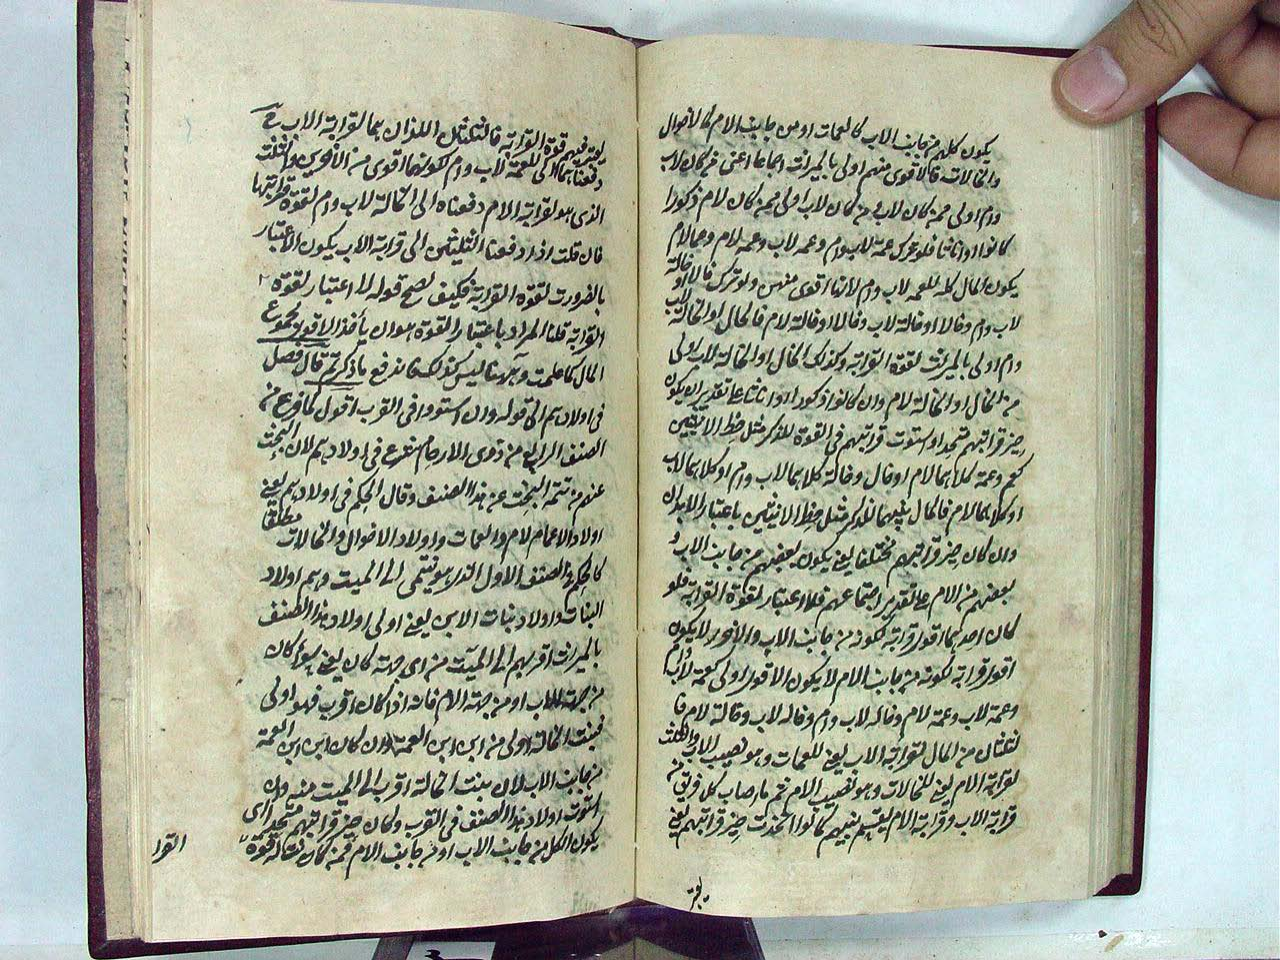 يكون كلهم من جانب الاب كالعمات او من جانب الام كالاخوال
والخالات فالاقوى منهم اولى بالميراث اجماعا اعنى من كان لاب
وام اولى ممن كان لاب ومن كان لاب اولى ممن كان لام ذكورا
كانوا او اناثا فلو ترك عمة لاب وام وعمة لاب وعمة لام وعما لام
يكون المال كله للعمة لاب وام لانها اقوى منهن ولو ترك خالا او خالة
لاب وام وخالا او خالة لاب وخالا او خالة لام فالخال او الخالة لاب
وام اولى بالميراث لقوة القرابة وكذلك الخال او الخالة لاب اولى
من الخال او الخالة لام وان كانوا ذكورا او اناثا على تقدير ان يكون
حيز قرابتهم متحدا واستوت قرابتهم في القوة للذكر مثل حظ الانثيين
كعم وعمة كلاهما لام او خال وخالة كلاهما لاب وام او كلاهما لاب
او كلاهما لام فالمال بينهما للذكر مثل حظ الانثيين باعتبار الابدان
وان كان حيز قرابتهم مختلفا يعني يكون بعضهم من جانب الاب و
بعضهم من الام على تقدير اجتماعهم فلا اعتبار لقوة القرابة فلو
كان احدهما اقوى قرابة لكونه من جانب الاب والآخر لا يكون
اقوى قرابة لكونه من جانب الام لا يكون الاقوى اولى كعمة لاب وام
وعمة لاب وعمة لام وخالة لاب وام وخالة لاب وخالة لام فا
لثلثان من المال لقرابة الاب يعني للعمات وهو نصيب الاب والثلث
لقرابة الام يعني للخالات وهو نصيب الام ثم ما اصاب كل فريق من
قرابة الاب وقرابة الام يقسم بينهم كما لو اتحدت حيز قرابتهم يعني
يعتبر
يعتبر فيهم قوة القرابة فالثلثان اللذان هما لقرابة الاب
دفعناهما الى العمة لاب وام لكونها اقوى من الاخريين والثلث
الذي هو لقرابة الام دفعناه الى الخالة لاب وام لقوة قرابتها
فان قلت اذا دفعنا الثلثين الى قرابة الاب يكون الاعتبار
بالضرورت لقوة القرابة فكيف لصح قوله لا اعتبار لقوة
القرابة قلنا المراد باعتبار القوة هو ان يأخذ الاقوى مجموع
المال كما علمت وههنا ليس كذلك فاندفع ما ذكرتم قال فصل
فى اولادهم الى قوله وان استووا فى القرب اقول لما فرغ من
الصنف الرابع من ذوى الارحام شرع فى اولادهم لان البحث
عنهم من تتمة البحث عن هذا الصنف وقال الحكم فى اولادهم يعني
اولاد الاعمام لام والعمات واولاد الاخوال والخالات مطلقا
كالحكم فى الصنف الاول الذي هو ينتمى الى الميت وهم اولاد
البنات واولاد بنات الابن يعني اولى اولاد هذا الصنف
بالميراث اقربهم الى الميت من اى جهة كان يعني سواء كان
من جهة الاب او من جهة الام فانه اذا كان اقرب فهو اولى
فبنت الخالة اولى من ابن ابن العمة وان كان ابن ابن العمة
من جانب الاب لان بنت الخالة اقرب الى الميت منه وان
استوت اولاد هذا الصنف فى القرب وكان حيز قرابتهم متحدا اى
يكون الكل من جانب الاب او من جانب الام فمن كان له قوة
القرا